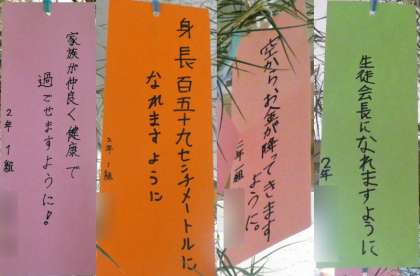 家族が仲良く健康で
過ごせますように!
2年1組
身長百五十九センチメートルに
なれますように
2年1組
空からお金が降ってきます
ように。
二年一組
生徒会長になれますように
2年